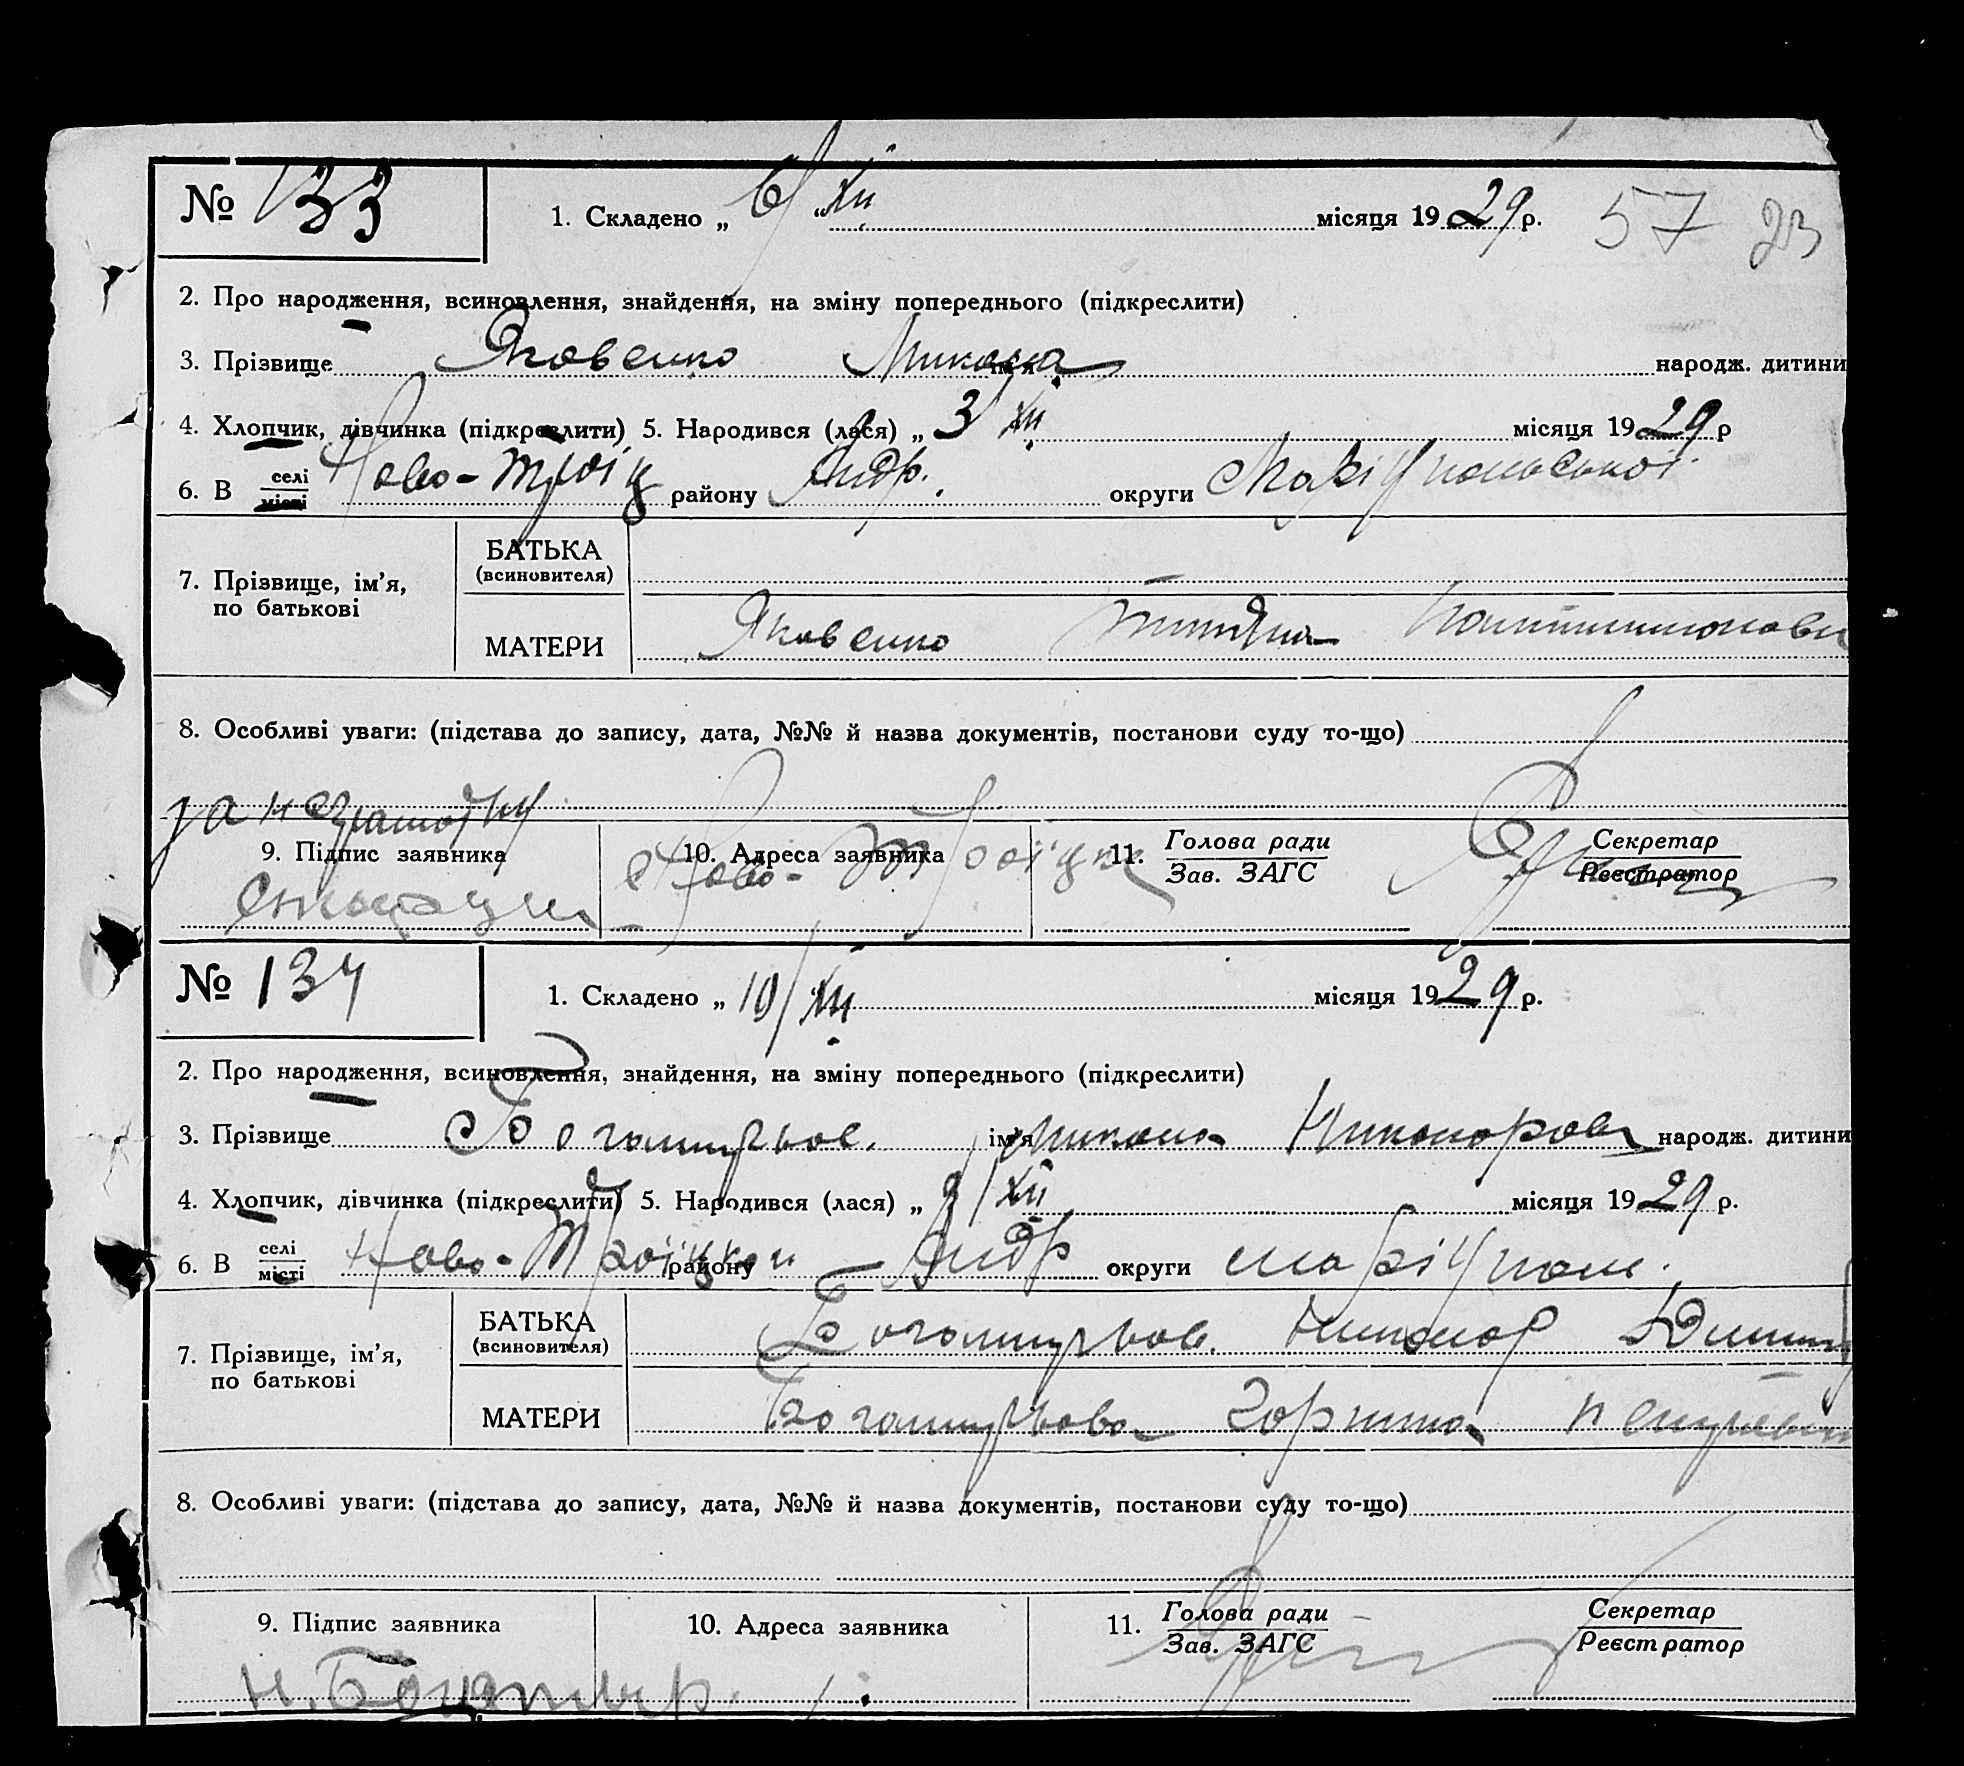 № 133 1. Складено „ 6/ “ XII місяця 1929 р. 57 23
2. Про народження, всиновлення, знайдення, на зміну попереднього (підкреслити)
3. Прізвище Яковенко ім'я Микола народж. дитини
4. Хлопчик, дівчинка (підкреслити) 5. Народився (лася) „ 3/ XII місяця 1929 р
6. В селі місті Ново-Троіц району Андр. округи Маріупольськоі
7. Прізвище, ім’я, по батькові
БАТЬКА (всиновителя) —
МАТЕРИ Яковенко
8. Особливі уваги: (підстава до запису, дата, №№ й назва документів, постанови суду то-що)
за неграмотну
9. Підпис заявника 10. Адреса заявника Ново-Троіцке 11. Голова ради Зав. ЗАГС Секретар Реєстратор
№ 134 1. Складено „ 10/ “ XII місяця 1929 р.
2. Про народження, всиновлення, знайдення, на зміну попереднього (підкреслити)
3. Прізвище Богатирьов. ім'я Микола Никоноров народж. дитини
4. Хлопчик, дівчинка (підкреслити) 5. Народився (лася) „ 9/ XII місяця 1929 р.
6. В селі місті Ново-Троіцком району Андр округи Маріупол.
7. Прізвище, ім’я, по батькові
БАТЬКА (всиновителя) Богатирьов. Никонор
МАТЕРИ Богатирьова
8. Особливі уваги: (підстава до запису, дата, №№ й назва документів, постанови суду то-що)
9. Підпис заявника 10. Адреса заявника 11. Голова ради Зав. ЗАГС Секретар Реєстратор
Н. Богатыр.